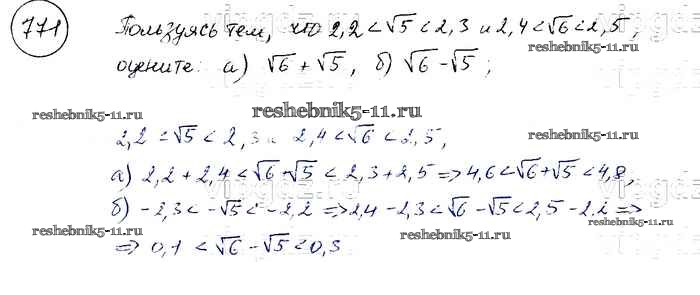 771
Пользуясь тем, что 2,2 < √5 < 2,3 и 2,4 < √6 < 2,5,
reshebnik5-11.ru
оцените: а) √6 + √5, б) √6 - √5;
reshebnik5-11.ru
reshebnik5-11.ru
reshebnik5-11.ru
2,2 < √5 < 2,3 и 2,4 < √6 < 2,5,
а) 2,2 + 2,4 < √6 + √5 < 2,3 + 2,5 => 4,6 < √6 + √5 < 4,8,
reshebnik5-11.ru
б) -2,3 < -√5 < -2,2 => 2,4 - 2,3 < √6 - √5 < 2,5 - 2,2 =>
reshebnik5-11.ru
=> 0,1 < √6 - √5 < 0,3